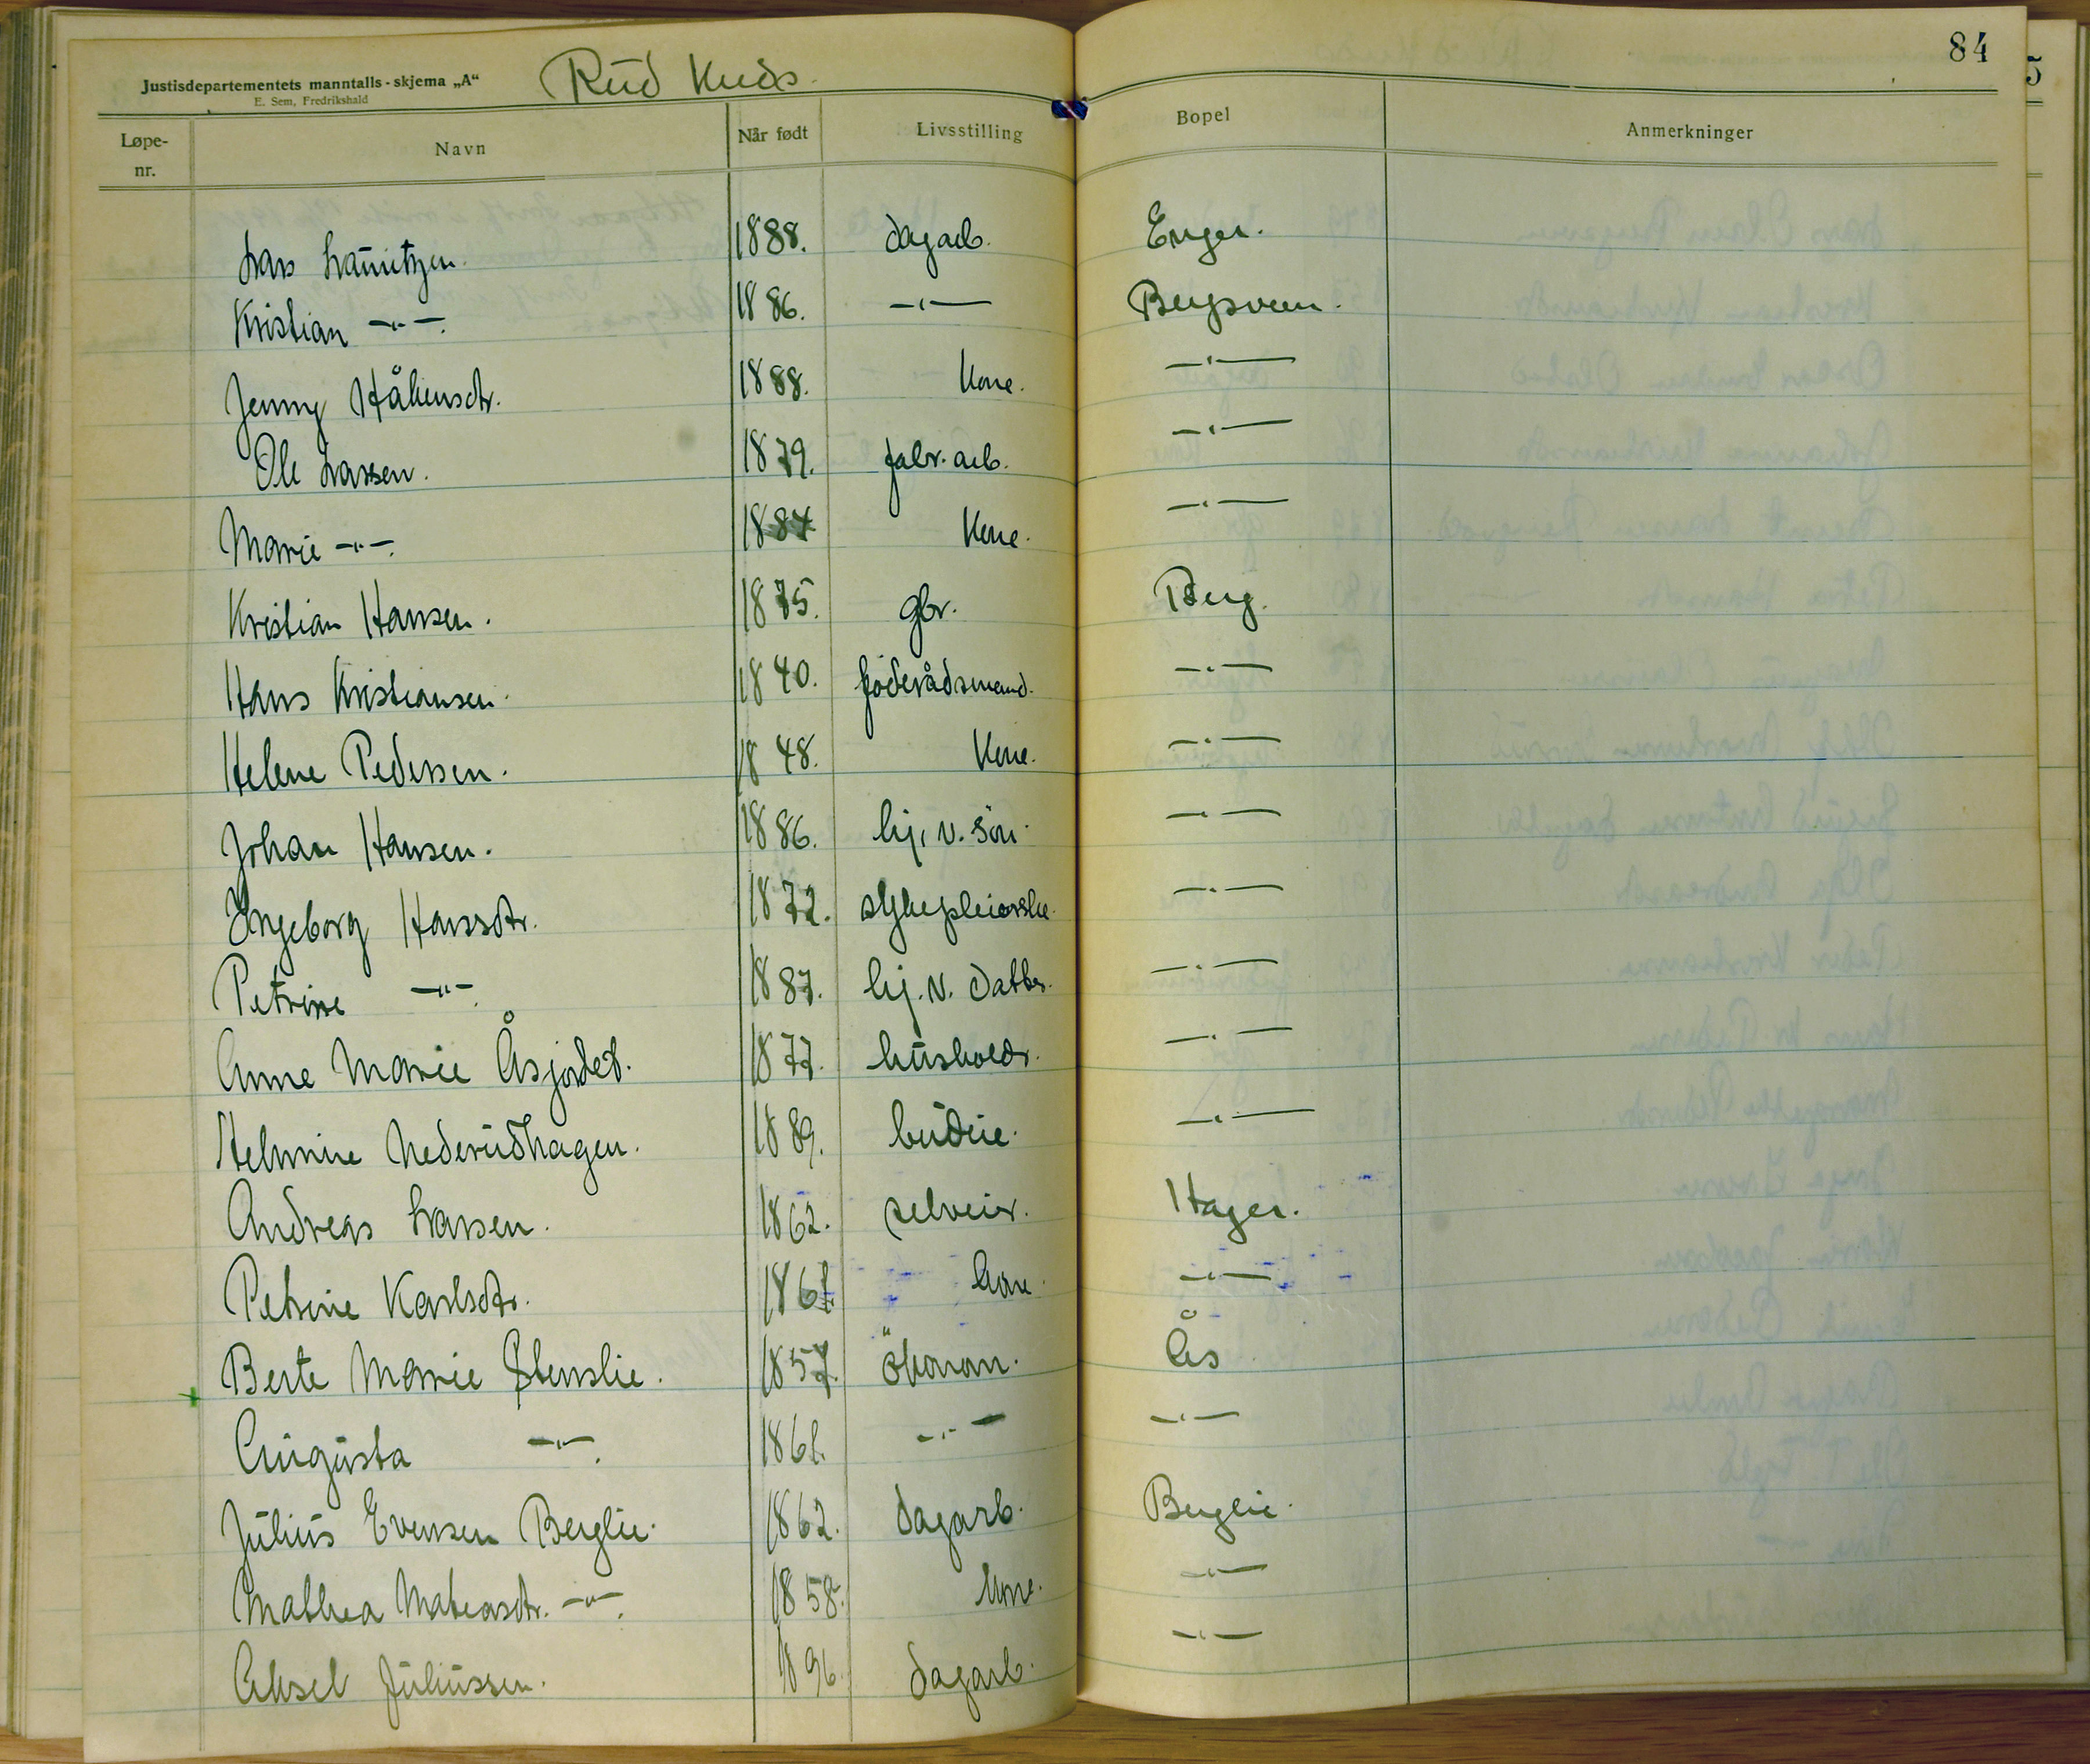 84
Justisdepartementets manntalls-skjema „A“ Rud Kreds.
E. Sem, Fredrikshald
Løpe-nr. Navn Når født Livsstilling Bopel Anmerkninger
Lars Lauritzen. 1888. dagarb. Enger.
Kristian —"—. 1886. —"— Bergsveen.
Jenny Håkensdtr. 1888. Kone. —"—
Ole Larsen. 1879. fabr. arb. —"—
Marie —"—. 1884 Kone. —"—
Kristian Hansen. 1875. gbr. Berg.
Hans Kristiansen. 1840. föderådsmand. —"—
Helene Pedersen. 1848. Kone. —"—
Johan Hansen. 1886. hj. v. Sön. —"—
Ingeborg Hansdtr. 1872. sykepleierske. —"—
Petrine —"—. 1887. hj. v. datter. —"—
Anne Marie Åsjordet. 1877. husholdr. —"—
Helmine Nederudhagen. 1889. budeie. —"—
Andreas Larsen. 1862. selveier. Hager.
Petrine Karlsdtr. 186 Kone. —"—
Berte Marie Stenslie. 1857. ökonom. Ås
Augusta —"—. 1861. —"— —"—
Julius Evensen Berglie. 1862. dagarb. Berglie.
Mathea Mateasdtr. —"—. 1858. Kone. —"—
Aksel Juliussen. 1896. dagarb. —"—